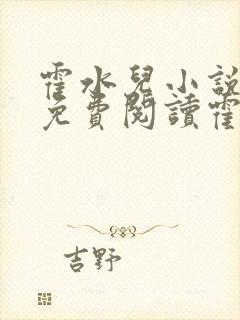 霍水兒小說
免費閱讀霍
吉野